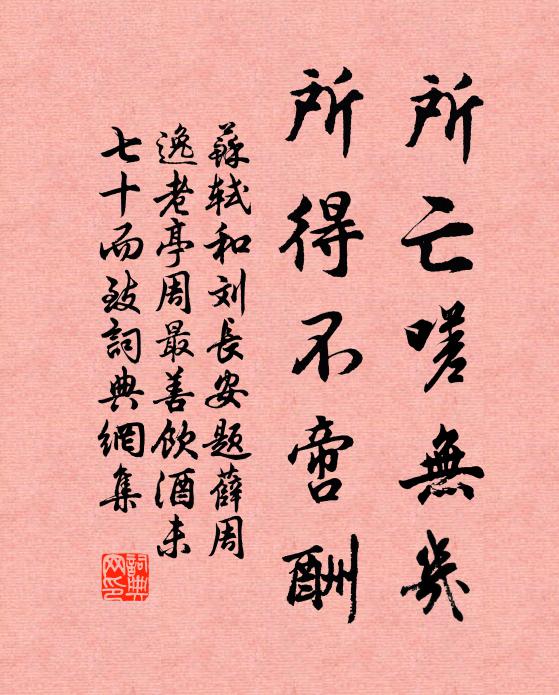 所亡嗟無幾
所得不啻酬
蘇轼和刘長安题薛周
逸老亭周最善飲酒未
七十而致詞典網集
詞典網印